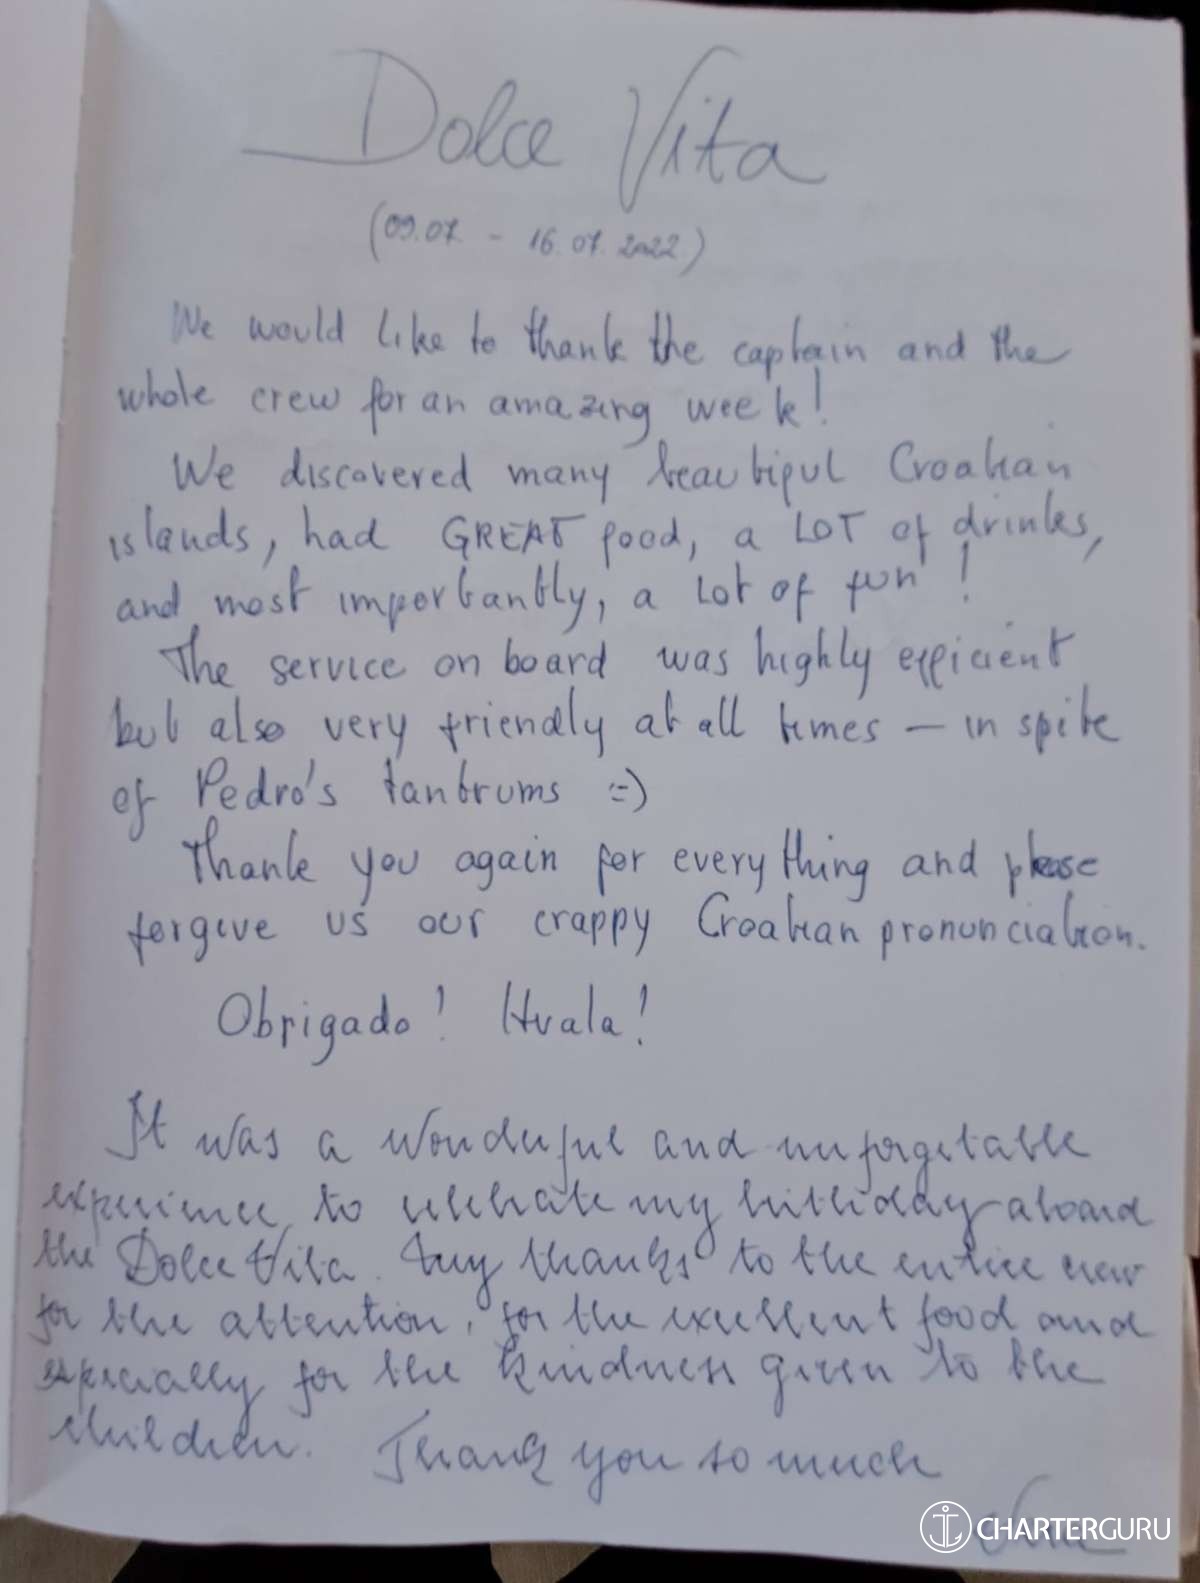 Dolce Vita
(09.07 - 16.07.2022)
We would like to thank the captain and the
whole crew for an amazing week!
We discovered many beautiful Croatian
islands, had GREAT food, a LOT of drinks,
and most importantly, a lot of fun!
The service on board was highly efficient
but also very friendly at all times – in spite
of Pedro's tantrums :=)
Thank you again for everything and please
forgive us our crappy Croatian pronunciation.
Obrigado! Hvala!
It was a wonderful and unforgetable
experience to celebrate my birthday aboard
the Dolce Vita. thanks to the entire crew
for the attention, for the excellent food and
especially for the kindness given to the
children. Thank you so much
CHARTERGURU